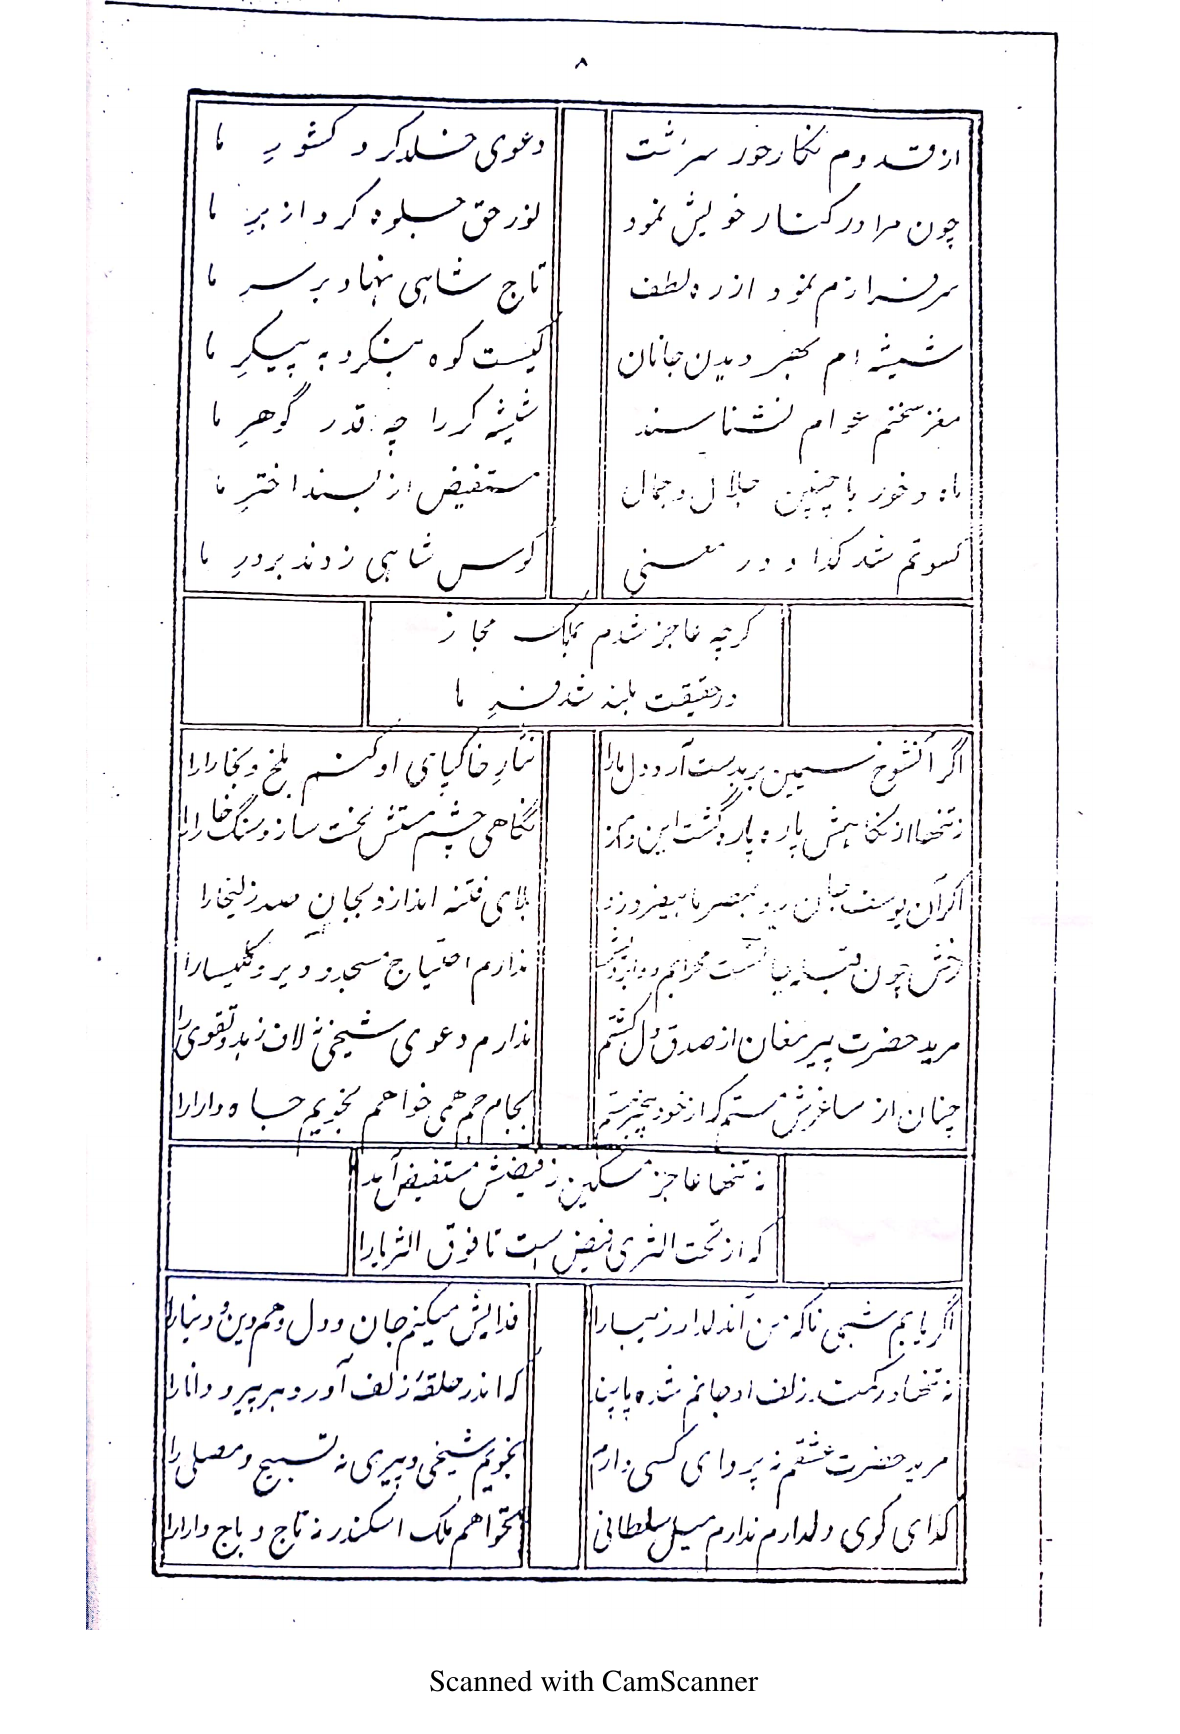 ۸
از قدوم نگار حور سرشت
دعوی خلد کرد کشورِ ما
چون مرا در کنار خویش نمود
نور حق جلوه کرد از برِ ما
سرفرازم نمود از ره لطف
تاج شاهی نهاد بر سرِ ما
شیشه ام بهر دیدن جانان
کیست کو بنگرد به پیکرِ ما
مغز سخنم عوام نشناسند
شیشه گر را چه قدر گوهرِ ما
ماه و خور با چنین جلال و جمال
مستفیض از بلند اخترِ ما
کسوتم شد گدا و در معنی
کوس شاهی زدند بر درِ ما
گرچه عاجز شدم بملک مجاز
در حقیقت بلند شد فرِ ما
اگر آنشوخ سیمین بر بدست آرد دل مارا
نثارِ خاکپای او کنم بلخ و بخارا را
نه تنها از نگاهش پاره پاره گشت این
نگاهی چشم مستش لخت سازد سنگ خارا را
اگر آن یوسف جان رو بمصر ما
بلای فتنه اندازد بجانِ صد زلیخا را
رخش چون قبله جا محرابم دو ابرویش
ندارم احتیاج مسجد و دیر و کلیسا را
مرید حضرت پیر مغان از صدق دل گشتم
ندارم دعوی شیخی نه لاف زهد و تقوی را
چنان از ساغرش مستم که از خود بیخبر هستم
بجام جم همی خواهم نجویم جاه دارا را
نه تنها عاجز مسکین ز فیضش مستفیض آمد
که از تحت الثری فیض است تا فوق الثریا را
اگر یابم شبی ناگه من آندلدار زیبا را
فدایش میکنم جان و دل و هم دین و دنیا را
نه تنها در کمند زلف او جانم شده پابند
که اندر حلقهٔ زلف آورد هر پیر و دانا را
مرید حضرت عشقم نه پروای کسی دارم
نجویم شیخی و پیری نه تسبیح و مصلی را
گدای کوی دلدارم ندارم میل سلطانی
نخواهم ملک اسکندر نه تاج و باج دارا را
Scanned with CamScanner